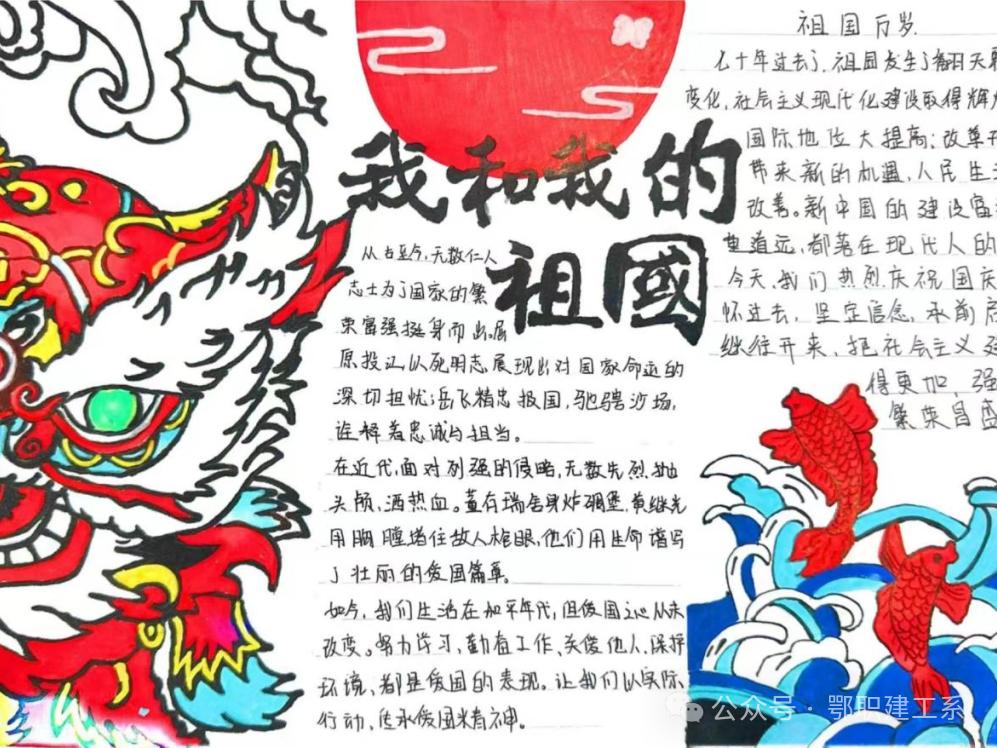 我和我的
祖國
从古至今,无数仁人
志士为了国家的繁
荣富强挺身而出。屈
原投江以死明志展现出对国家命运的
深切担忧;岳飞精忠报国,驰骋沙场,
诠释着忠诚与担当。
在近代,面对列强的侵略,无数先烈抛
头颅,洒热血。董存瑞舍身炸碉堡,黄继光
用胸膛堵住敌人枪眼,他们用生命谱写
了壮丽的爱国篇章。
如今,我们生活在和平年代,但爱国之心从未
改变。努力学习,勤奋工作、关爱他人、保护
环境,都是爱国的表现。让我们以实际
行动,传承爱国精神。
祖国万岁
七十年过去了,祖国发生了翻天
变化,社会主义现代化建设取得辉
国际地位大提高;改革开
带来新的机遇,人民生
改善。新中国的建设
道远,都落在现代人的
今天,我们热烈庆祝国庆
怀过去,坚定信念,承前启
继往开来,把社会主义建
得更加,强
繁荣昌盛
公众号·鄂职建工系